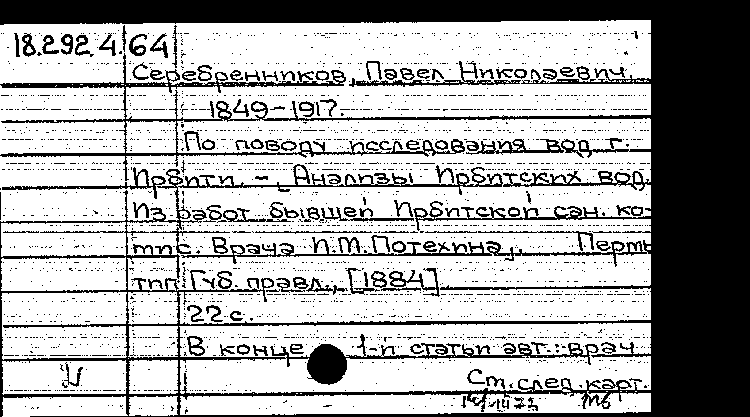 18.292.4.64
Серебренников, Павел Николаевич,
1849-1917.
По поводу исследования вод г.
Ирбити. - Анализы Ирбитских вод.
Из работ бывшей Ирбитской сан. ко-
мис. Врача И.М.Потехина. Пермь
тип Губ. правл., [1884]
22 с.
В конце 1-й статьи авт.: врач
См. след. карт.